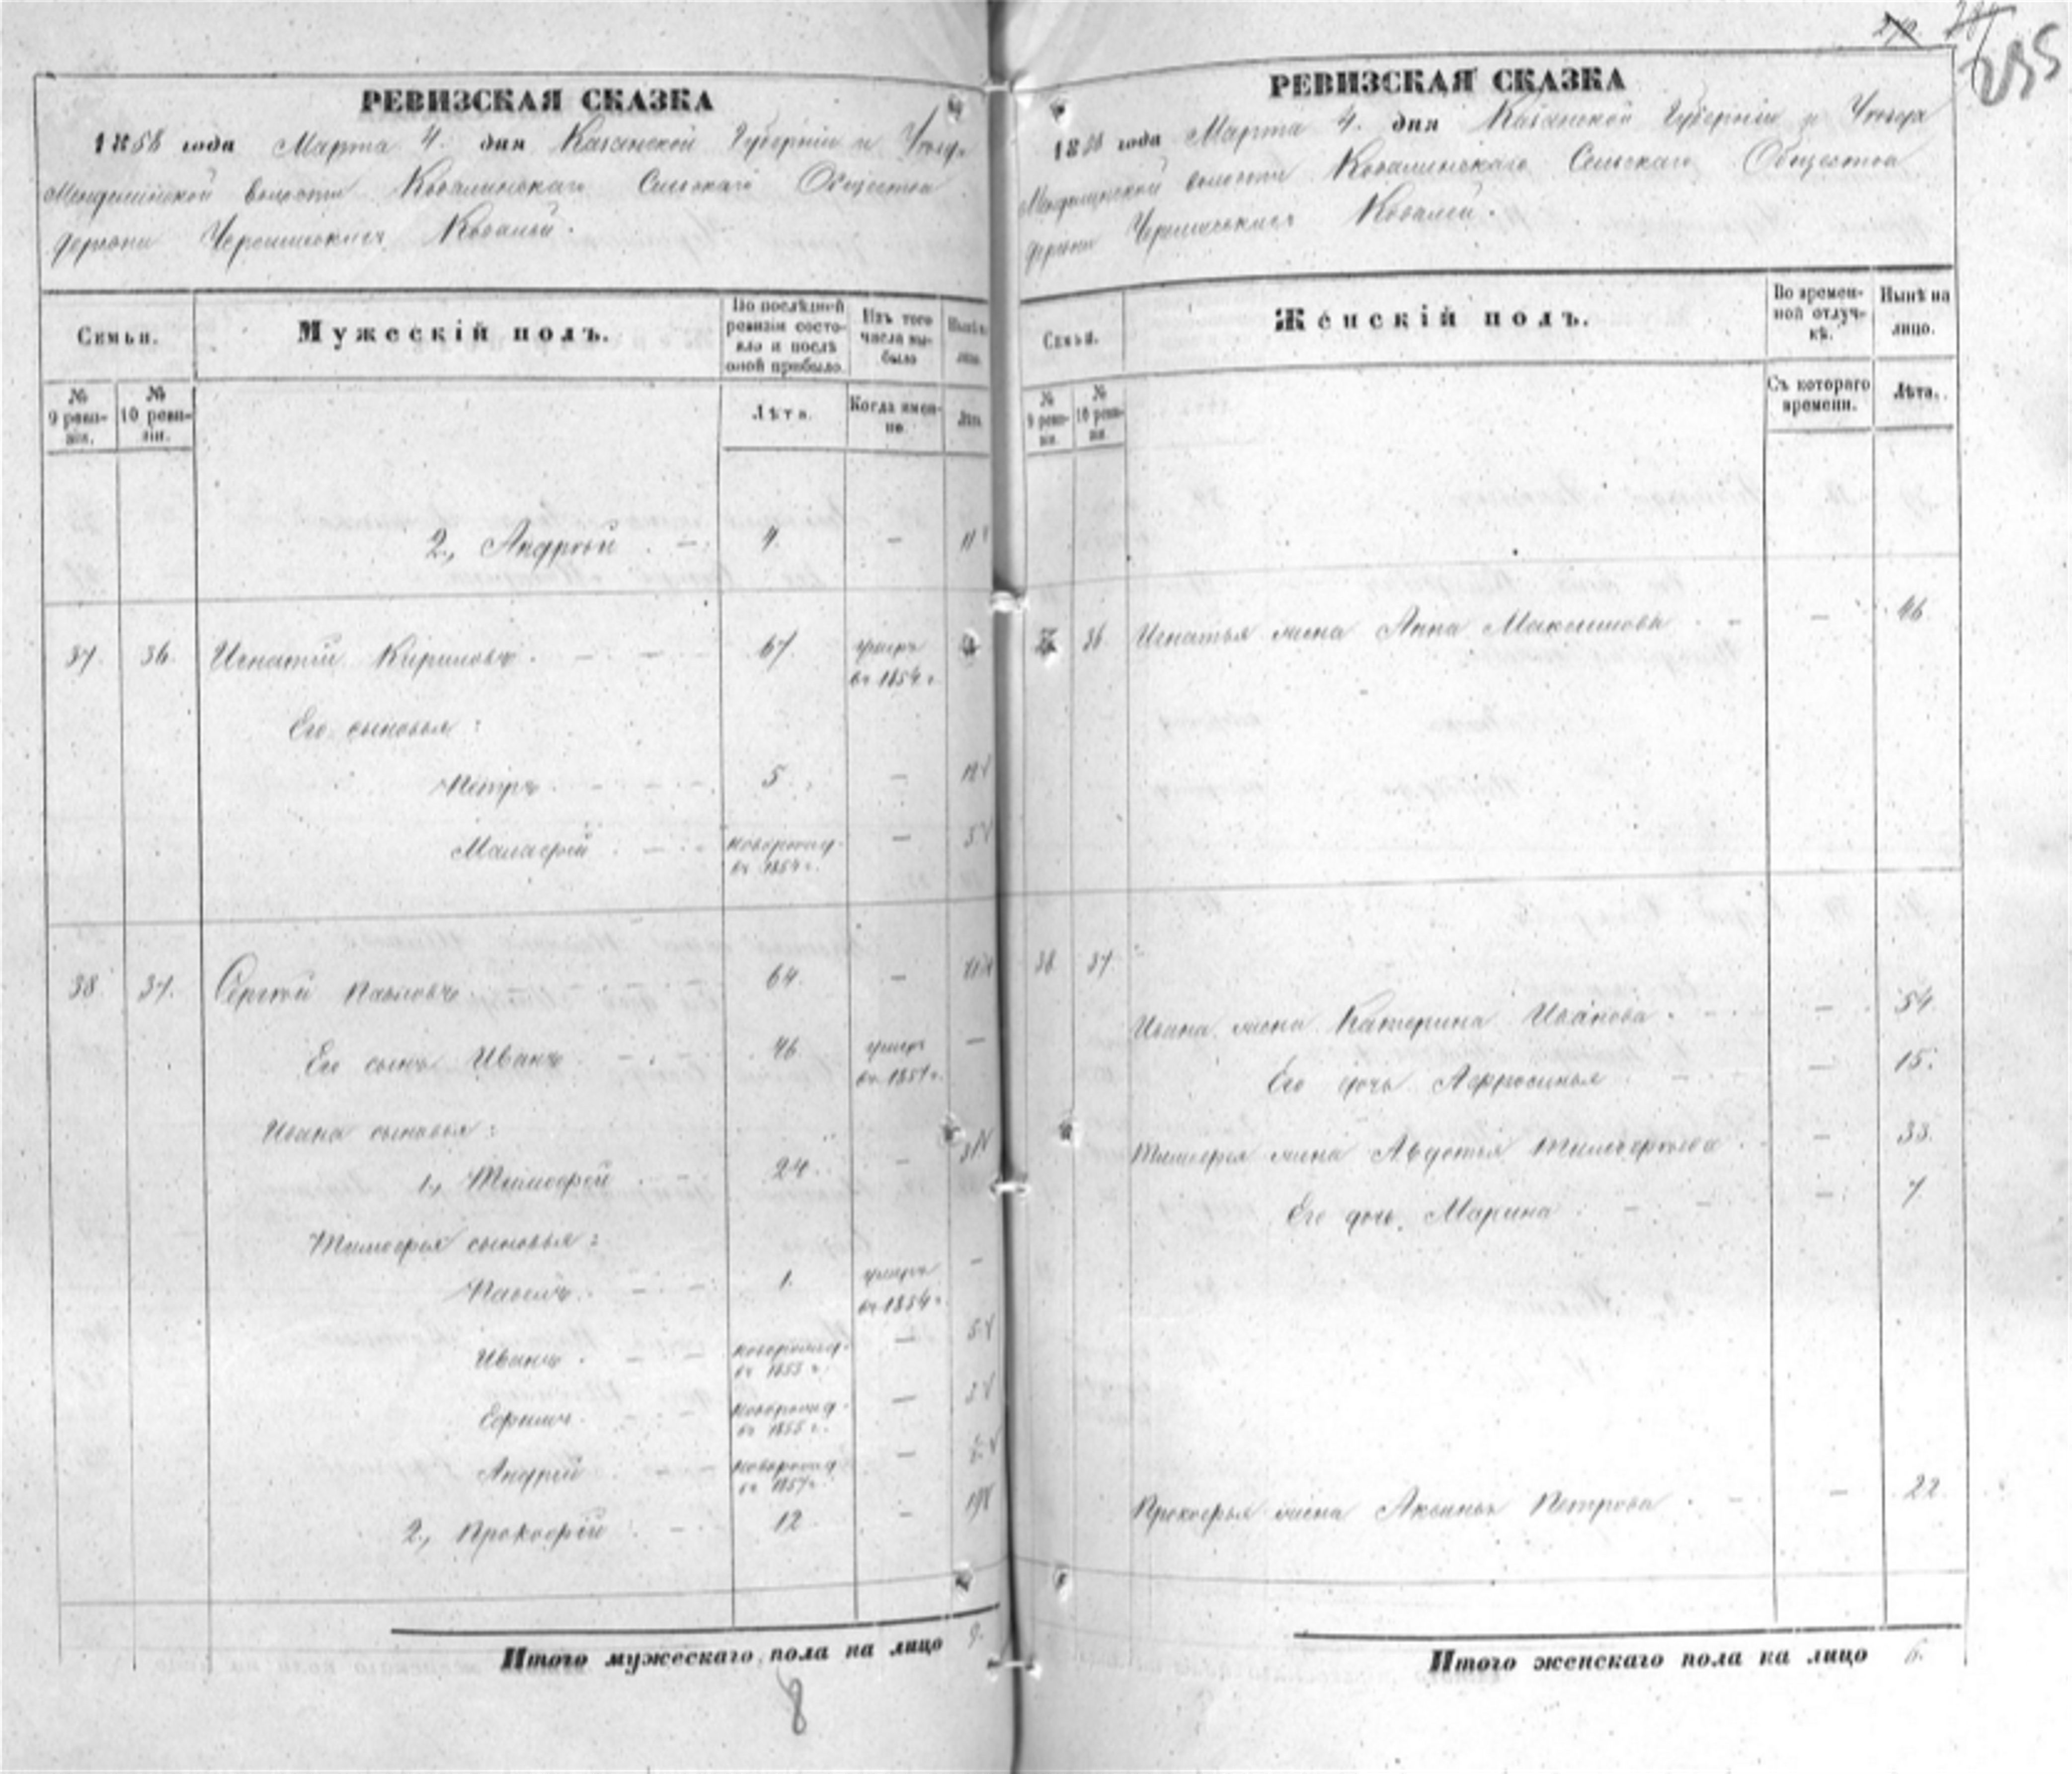 РЕВИЗСКАЯ СКАЗКА
1858 года Марта 4. дня Казанской Губерніи и Уезда
волости Ковалинскаго Сельскаго Общества
деревни Черемшскихъ Ковалей.
Семьи.
Мужескій полъ.
По послѣдней ревизіи состояло и послѣ оной прибыло.
Изъ того числа выбыло
Нынѣ на лицо.
№ 9 ревизіи.
№ 10 ревизіи.
Лѣта.
Когда именно.
Лѣта.
2., Андрей 4. — 11
37 36. Игнатій Кириловъ 67 умеръ въ 1854 г.
Его сыновья:
Петръ 5. — 12
Малафей новорожд. въ 1854 г. — 3
38. 37. Сергей Павловъ 64. —
Его сынъ Иванъ 46 умеръ въ 1857 г. —
Ивана сыновья:
1., Тимофей 24. —
Тимофея сыновья:
Павелъ 1. умеръ въ 1854 г. —
Иванъ новорожд. въ 1853 г. — 5
Ефимъ новорожд. въ 1855 г. — 3
Андрей новорожд. въ 1857 г. —
2., Прокофій 12 — 19
Итого мужескаго пола на лицо 9.
8
285
РЕВИЗСКАЯ СКАЗКА
1858 года Марта 4. дня Казанской Губерніи и Уезда
волости Ковалинскаго Сельскаго Общества
деревни Черемшскихъ Ковалей.
Семьи.
Женскій полъ.
Во временной отлучкѣ.
Нынѣ на лицо.
№ 9 ревизіи.
№ 10 ревизіи.
Съ котораго времени.
Лѣта.
36 Игнатья жена Анна Максимова — 46
38 37
Ивана жена Катерина Иванова — 54
Его дочь Афросинья — 15.
Тимофея жена Авдотья Тимофеева — 33.
Его дочь Марина — 7.
Прокофья жена Аксинья Петрова — 22.
Итого женскаго пола на лицо 6.